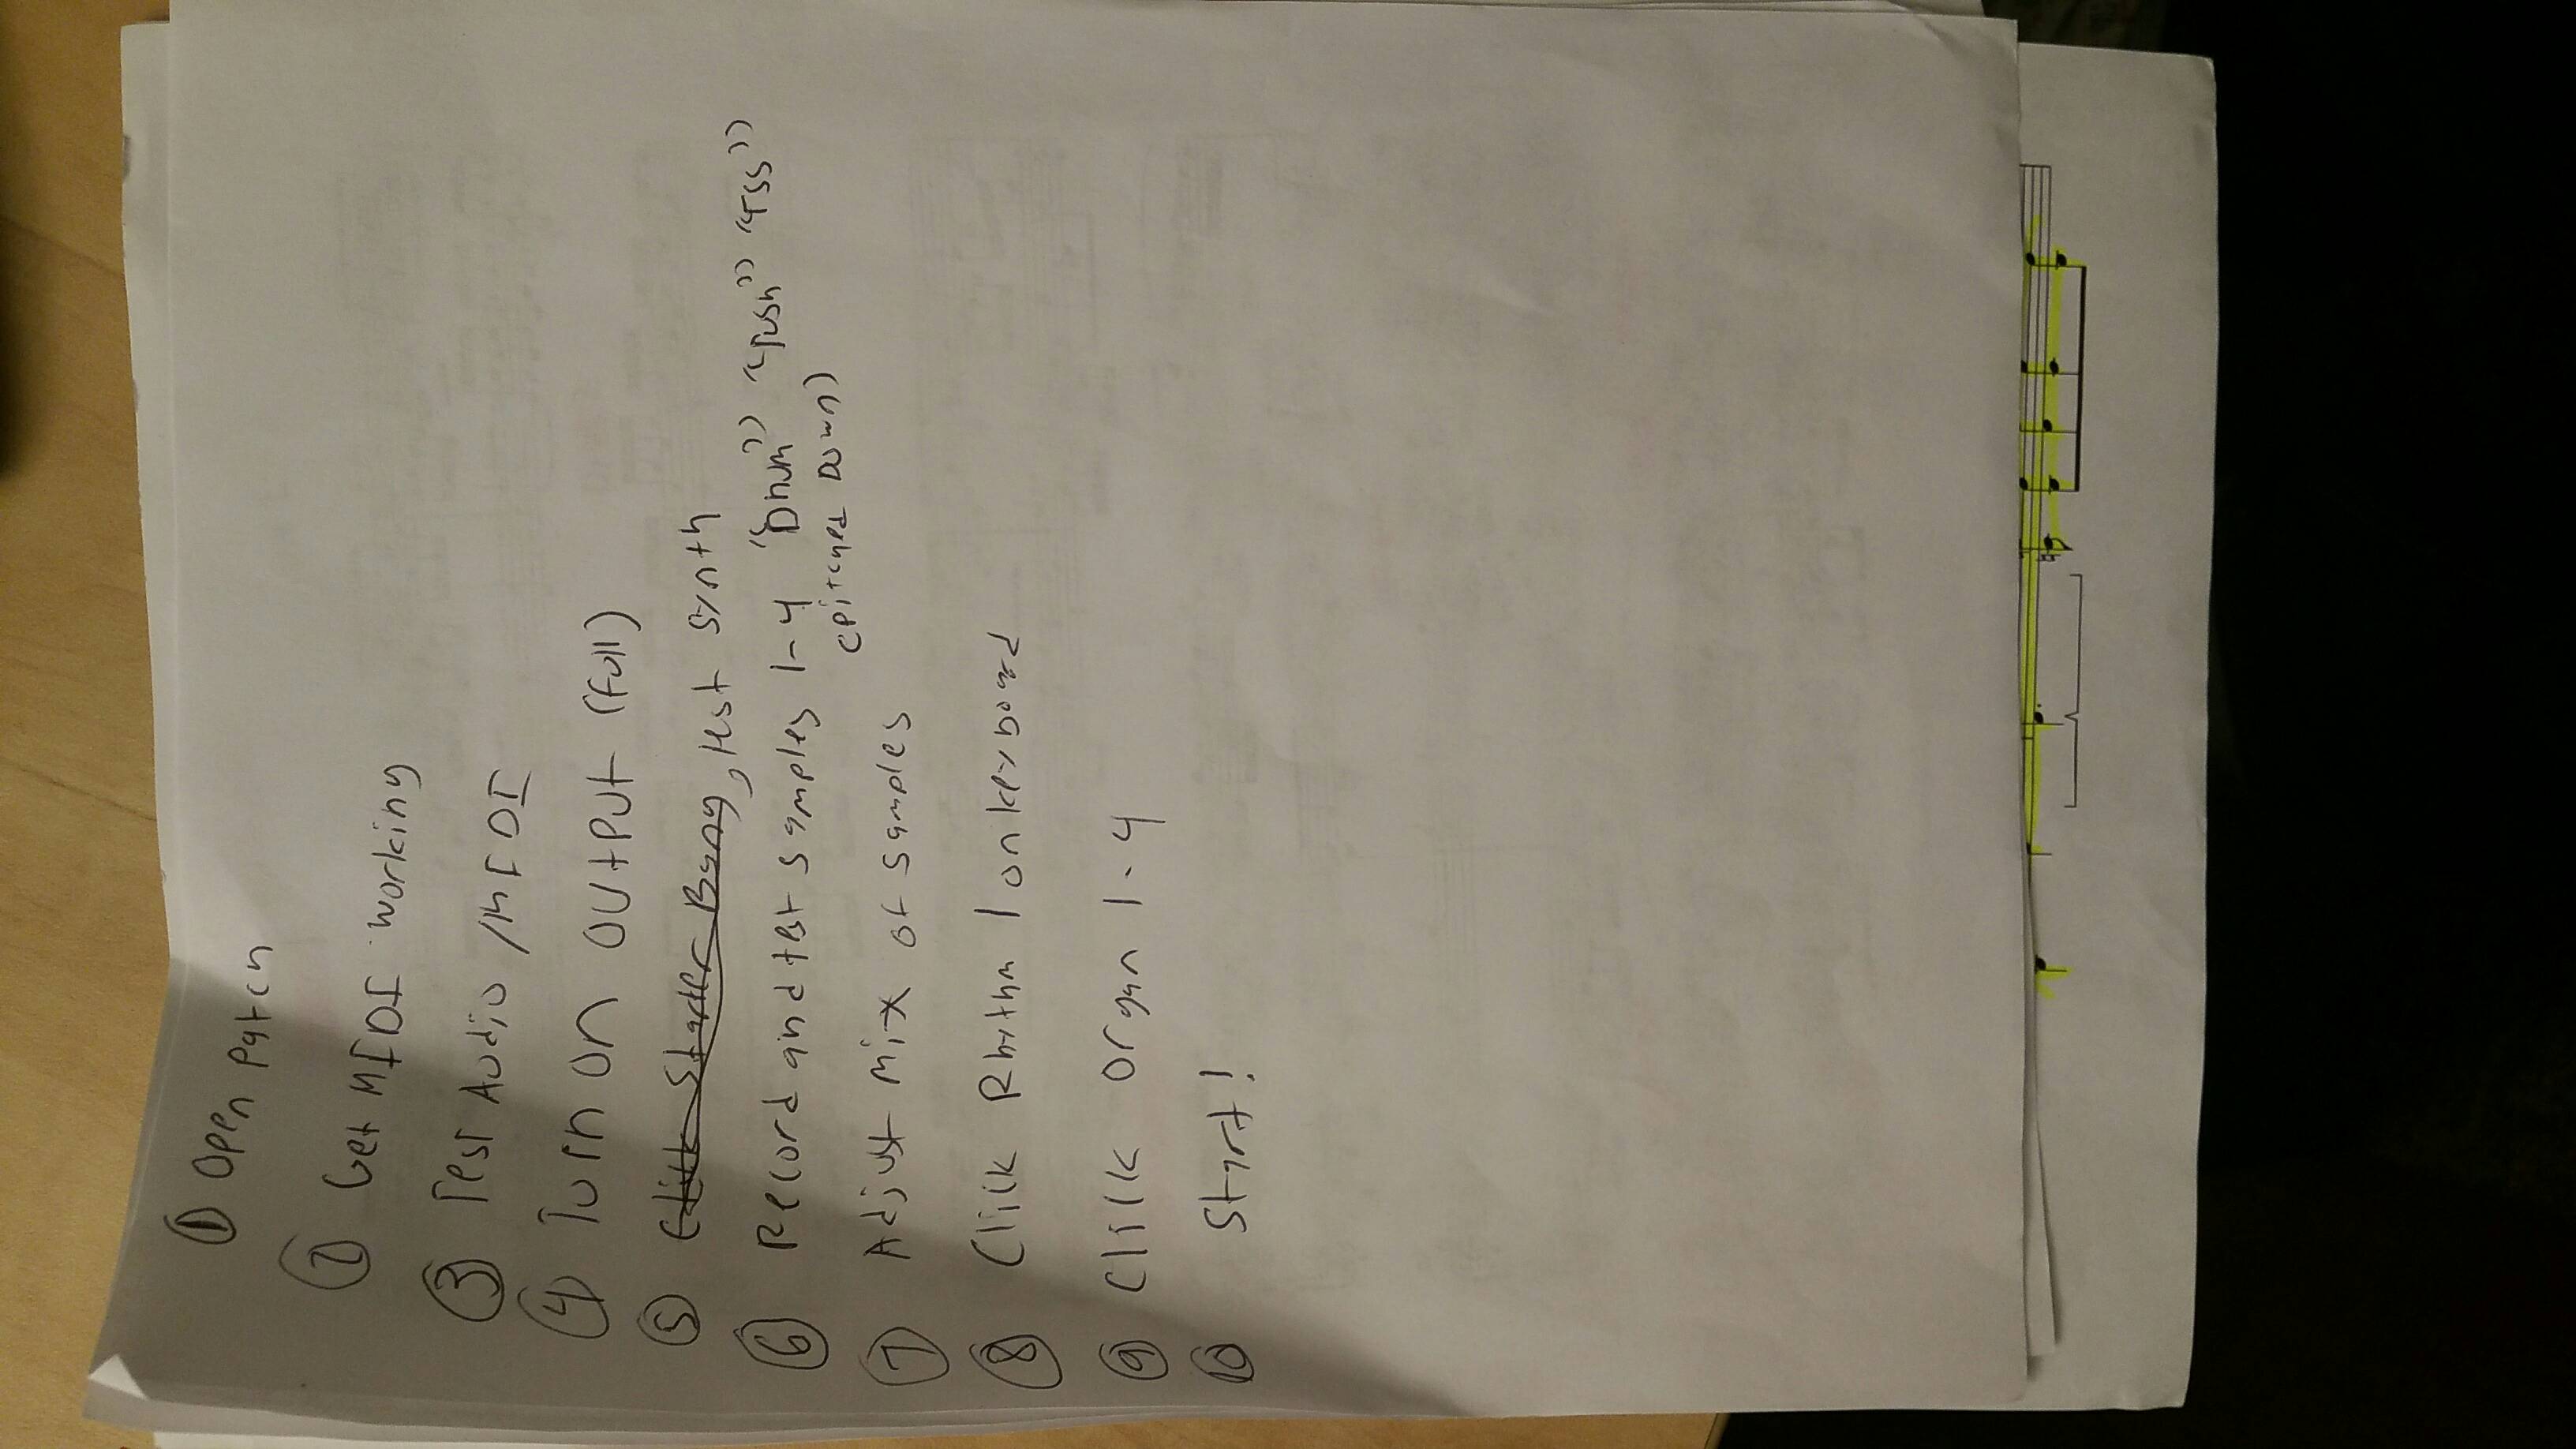 ① Open Patch
② Get MIDI working
③ Test Audio /MIDI
④ Turn on output (full)
⑤ Click Starter Bang, test synth
⑥ Record and test samples 1-4 "Dhum" "push" "Tss"
(pitched Down)
⑦ Adjust Mix of samples
⑧ Click Rhythm 1 on keyboard
⑨ Click Organ 1-4
⑩ Start!